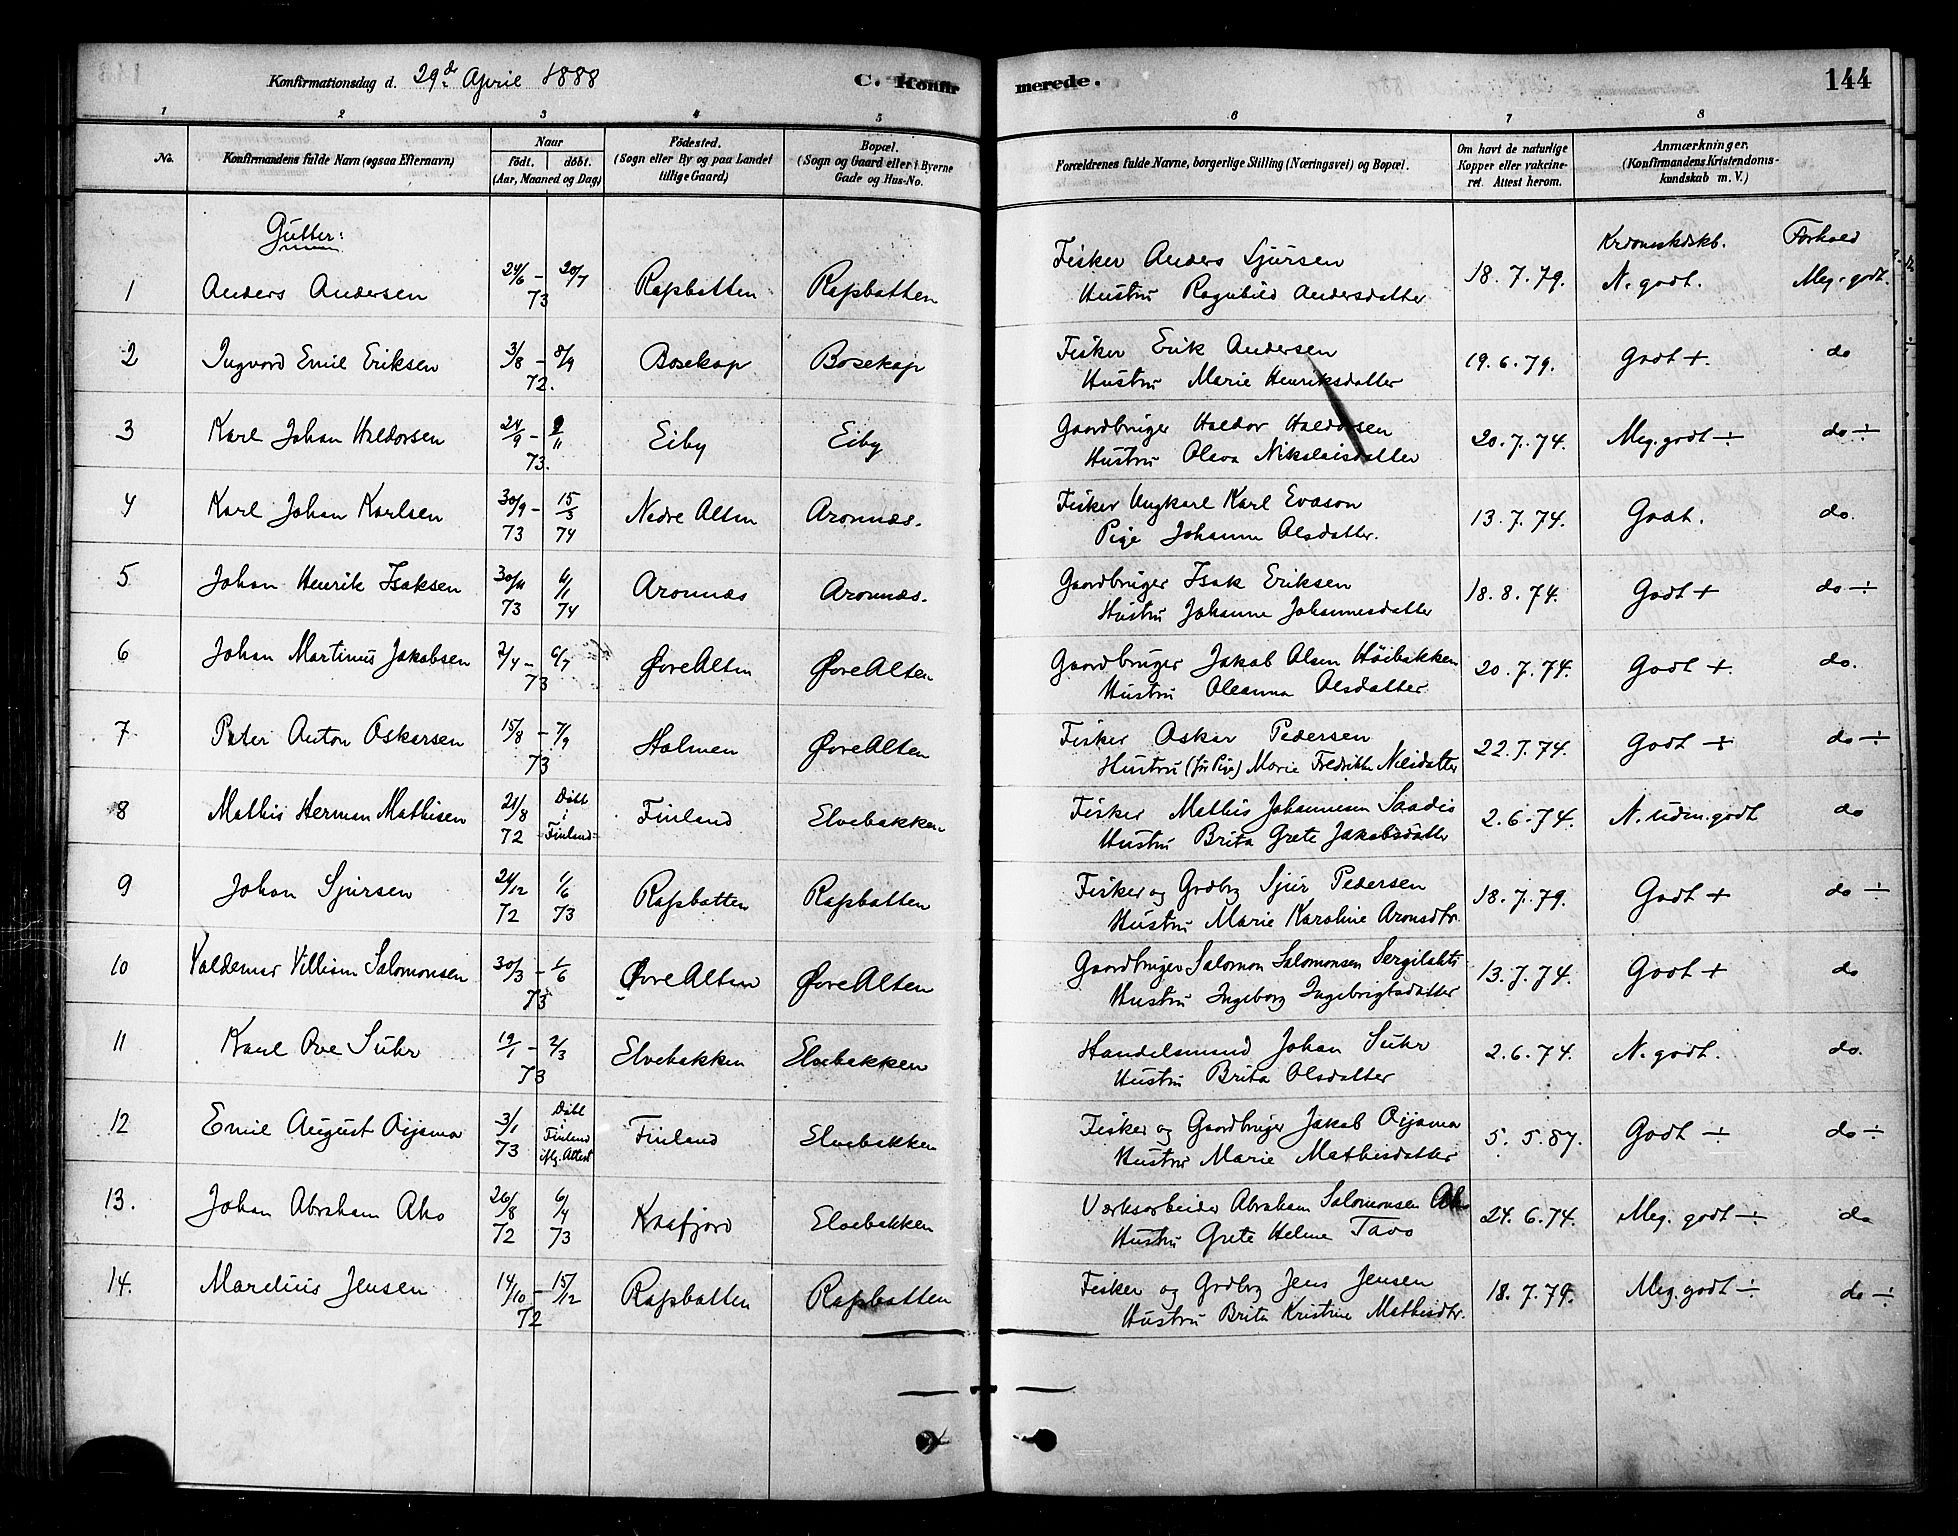 Konfirmationsdag d. 29de April 1888
C. Konfir merede.
144
1 2 3 4 5 6 7 8
No.
Konfirmandens fulde Navn (ogsaa Efternavn)
Naar
födt. döbt.
(Aar, Maaned og Dag)
Födested.
(Sogn eller By og paa Landet
tillige Gaard)
Bopæl.
(Sogn og Gaard eller i Byerne
Gade og Hus-No.
Forældrenes fulde Navne, borgerlige Stilling (Næringsvei) og Bopæl.
Om havt de naturlige
Kopper eller vakcine-
ret. Attest herom.
Anmærkninger.
(Konfirmandens Kristendoms-
kundskab m. V.)
Gutter:
Krdomskdskb. Forhold
1 Anders Andersen 24/6 – 20/7 73 Rafsbatten Rafsbatten Fisker Anders Sjursen 18.7.79. N. godt. Meg. godt.
Hustru Ragnhild Andersdatter
2 Ingvard Emil Eriksen 3/8 – 8/9 72. Bosekop Bosekop Fisker Erik Andersen 19.6.79. Godt + do
Hustru Marie Henriksdatter
3 Karl Johan Haldorsen 24/9 – 2/11 73. Eiby Eiby Gaardbruger Haldor Haldorsen 20.7.74. Meg. godt ÷ do ÷
Hustru Olava Nikolaisdatter
4 Karl Johan Karlsen 30/9 – 15/3 73 74 Nedre Alten Aronnæs. Fisker Ungkarl Karl Evason 13.7.74. Godt. do.
Pige Johanne Olsdatter.
5 Johan Henrik Isaksen 30/11 6/1 73 74 Aronnæs Aronnæs. Gaardbruger Isak Eriksen 18.8.74. Godt + do ÷
Hustru Johanne Johannesdatter
6 Johan Martinus Jakobsen 2/4 – 6/7 73 Øvre Alten Øvre Alten Gaardbruger Jakob Olsen Höibakken 20.7.74. Godt +. do.
Hustru Oleanna Olsdatter.
7 Peter Anton Oskarsen 15/8 – 7/9 73 Holmen Øvre Alten Fisker Oskar Pedersen 22.7.74. Godt + do ÷
Hustru (för Pige) Marie Fredrikke Nilsdatter
8 Mathis Herman Mathisen 21/8 72 Döbt i Finland Finland Elvebakken Fisker Mathis Johannesen Saadio 2.6.74. N. udm. godt do
Hustru Brita Grete Jakobsdatter
9 Johan Sjursen 24/12 1/6 72 73 Rafsbatten Rafsbatten Fisker og Grdbrg Sjur Pedersen 18.7.79. Godt + do ÷
Hustru Marie Karoline Aronsdtr.
10 Valdemar Villiam Salomonsen 30/3 – 1/6 73 Øvre Alten Øvre Alten Gaardbruger Salomon Salomonsen 13.7.74. Godt + do
Hustru Ingeborg Ingebrigtsdatter
11 Karl Ove Suhr 19/1 – 2/3 73 Elvebakken Elvebakken Handelsmand Johan Suhr 2.6.74. N. godt. do.
Hustru Brita Olsdatter
12 Emil August Oijama 3/1 73 Döbt i Finland Attest Finland Elvebakken Fisker og Gaardbruger Jakob Oijama 5.5.87. Godt ÷ do ÷
Hustru Marie Mathisdatter
13. Johan Abraham Aho 26/8 6/4 72 73 Kaafjord Elvebakken Værksarbeider Abraham Salomonsen Aho 24.6.74. Meg. godt ÷ do
Hustru Grete Helene Tavo
14. Marelius Jensen 14/10 – 15/12 72 Rafsbatten Rafsbatten Fisker og Grdbrg Jens Jensen 18.7.79. Meg. godt ÷ do ÷
Hustru Brita Kristine Mathisdtr.